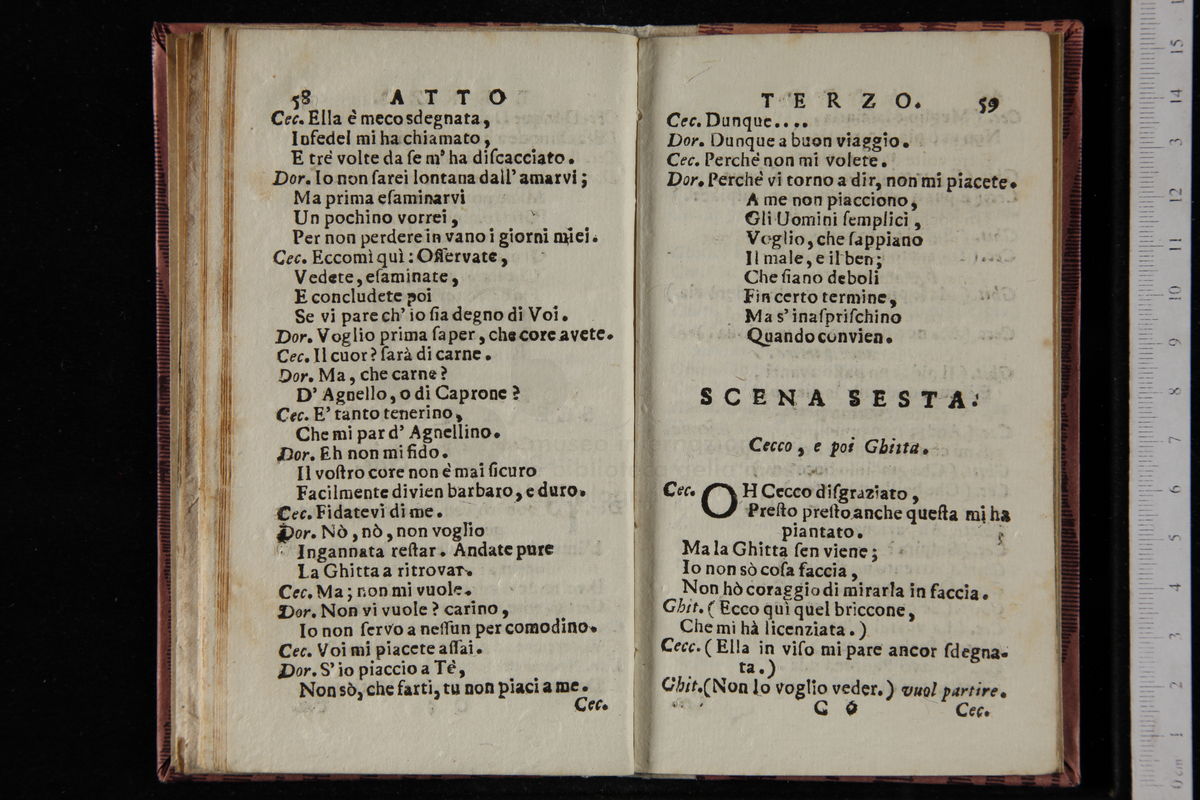 58 ATTO
Cec. Ella è meco sdegnata,
Infedel mi ha chiamato,
E trè volte da se m' ha diſcacciato.
Dor. Io non ſarei lontana dall' amarvi;
Ma prima eſaminarvi
Un pochino vorrei,
Per non perdere in vano i giorni miei.
Cec. Eccomi quì: Oſſervate,
Vedete, eſaminate,
E concludete poi
Se vi pare ch' io ſia degno di Voi.
Dor. Voglio prima ſaper, che core avete.
Cec. Il cuor? ſarà di carne.
Dor. Ma, che carne?
D' Agnello, o di Caprone?
Cec. E' tanto tenerino,
Che mi par d' Agnellino.
Dor. Eh non mi fido.
Il voſtro core non è mai ſicuro
Facilmente divien barbaro, e duro.
Cec. Fidatevi di me.
Dor. Nò, nò, non voglio
Ingannata reſtar. Andate pure
La Ghitta a ritrovar.
Cec. Ma; non mi vuole.
Dor. Non vi vuole? carino,
Io non ſervo a neſſun per comodino.
Cec. Voi mi piacete aſſai.
Dor. S' io piaccio a Tè,
Non sò, che farti, tu non piaci a me.
Cec.
TERZO. 59
Cec. Dunque....
Dor. Dunque a buon viaggio.
Cec. Perchè non mi volete.
Dor. Perchè vi torno a dir, non mi piacete.
A me non piacciono,
Gli Uomini ſemplici,
Voglio, che ſappiano
Il male, e il ben;
Che ſiano deboli
Fin certo termine,
Ma s' inaſpriſchino
Quando convien.
SCENA SESTA.
Cecco, e poi Ghitta.
Cec. OH Cecco diſgraziato,
Preſto preſto anche queſta mi ha
piantato.
Ma la Ghitta ſen viene;
Io non sò coſa faccia,
Non hò coraggio di mirarla in faccia.
Ghit. (Ecco quì quel briccone,
Che mi hà licenziata.)
Cecc. (Ella in viſo mi pare ancor ſdegna-
ta.)
Ghit. (Non lo voglio veder.) vuol partire.
C 6 Cec.